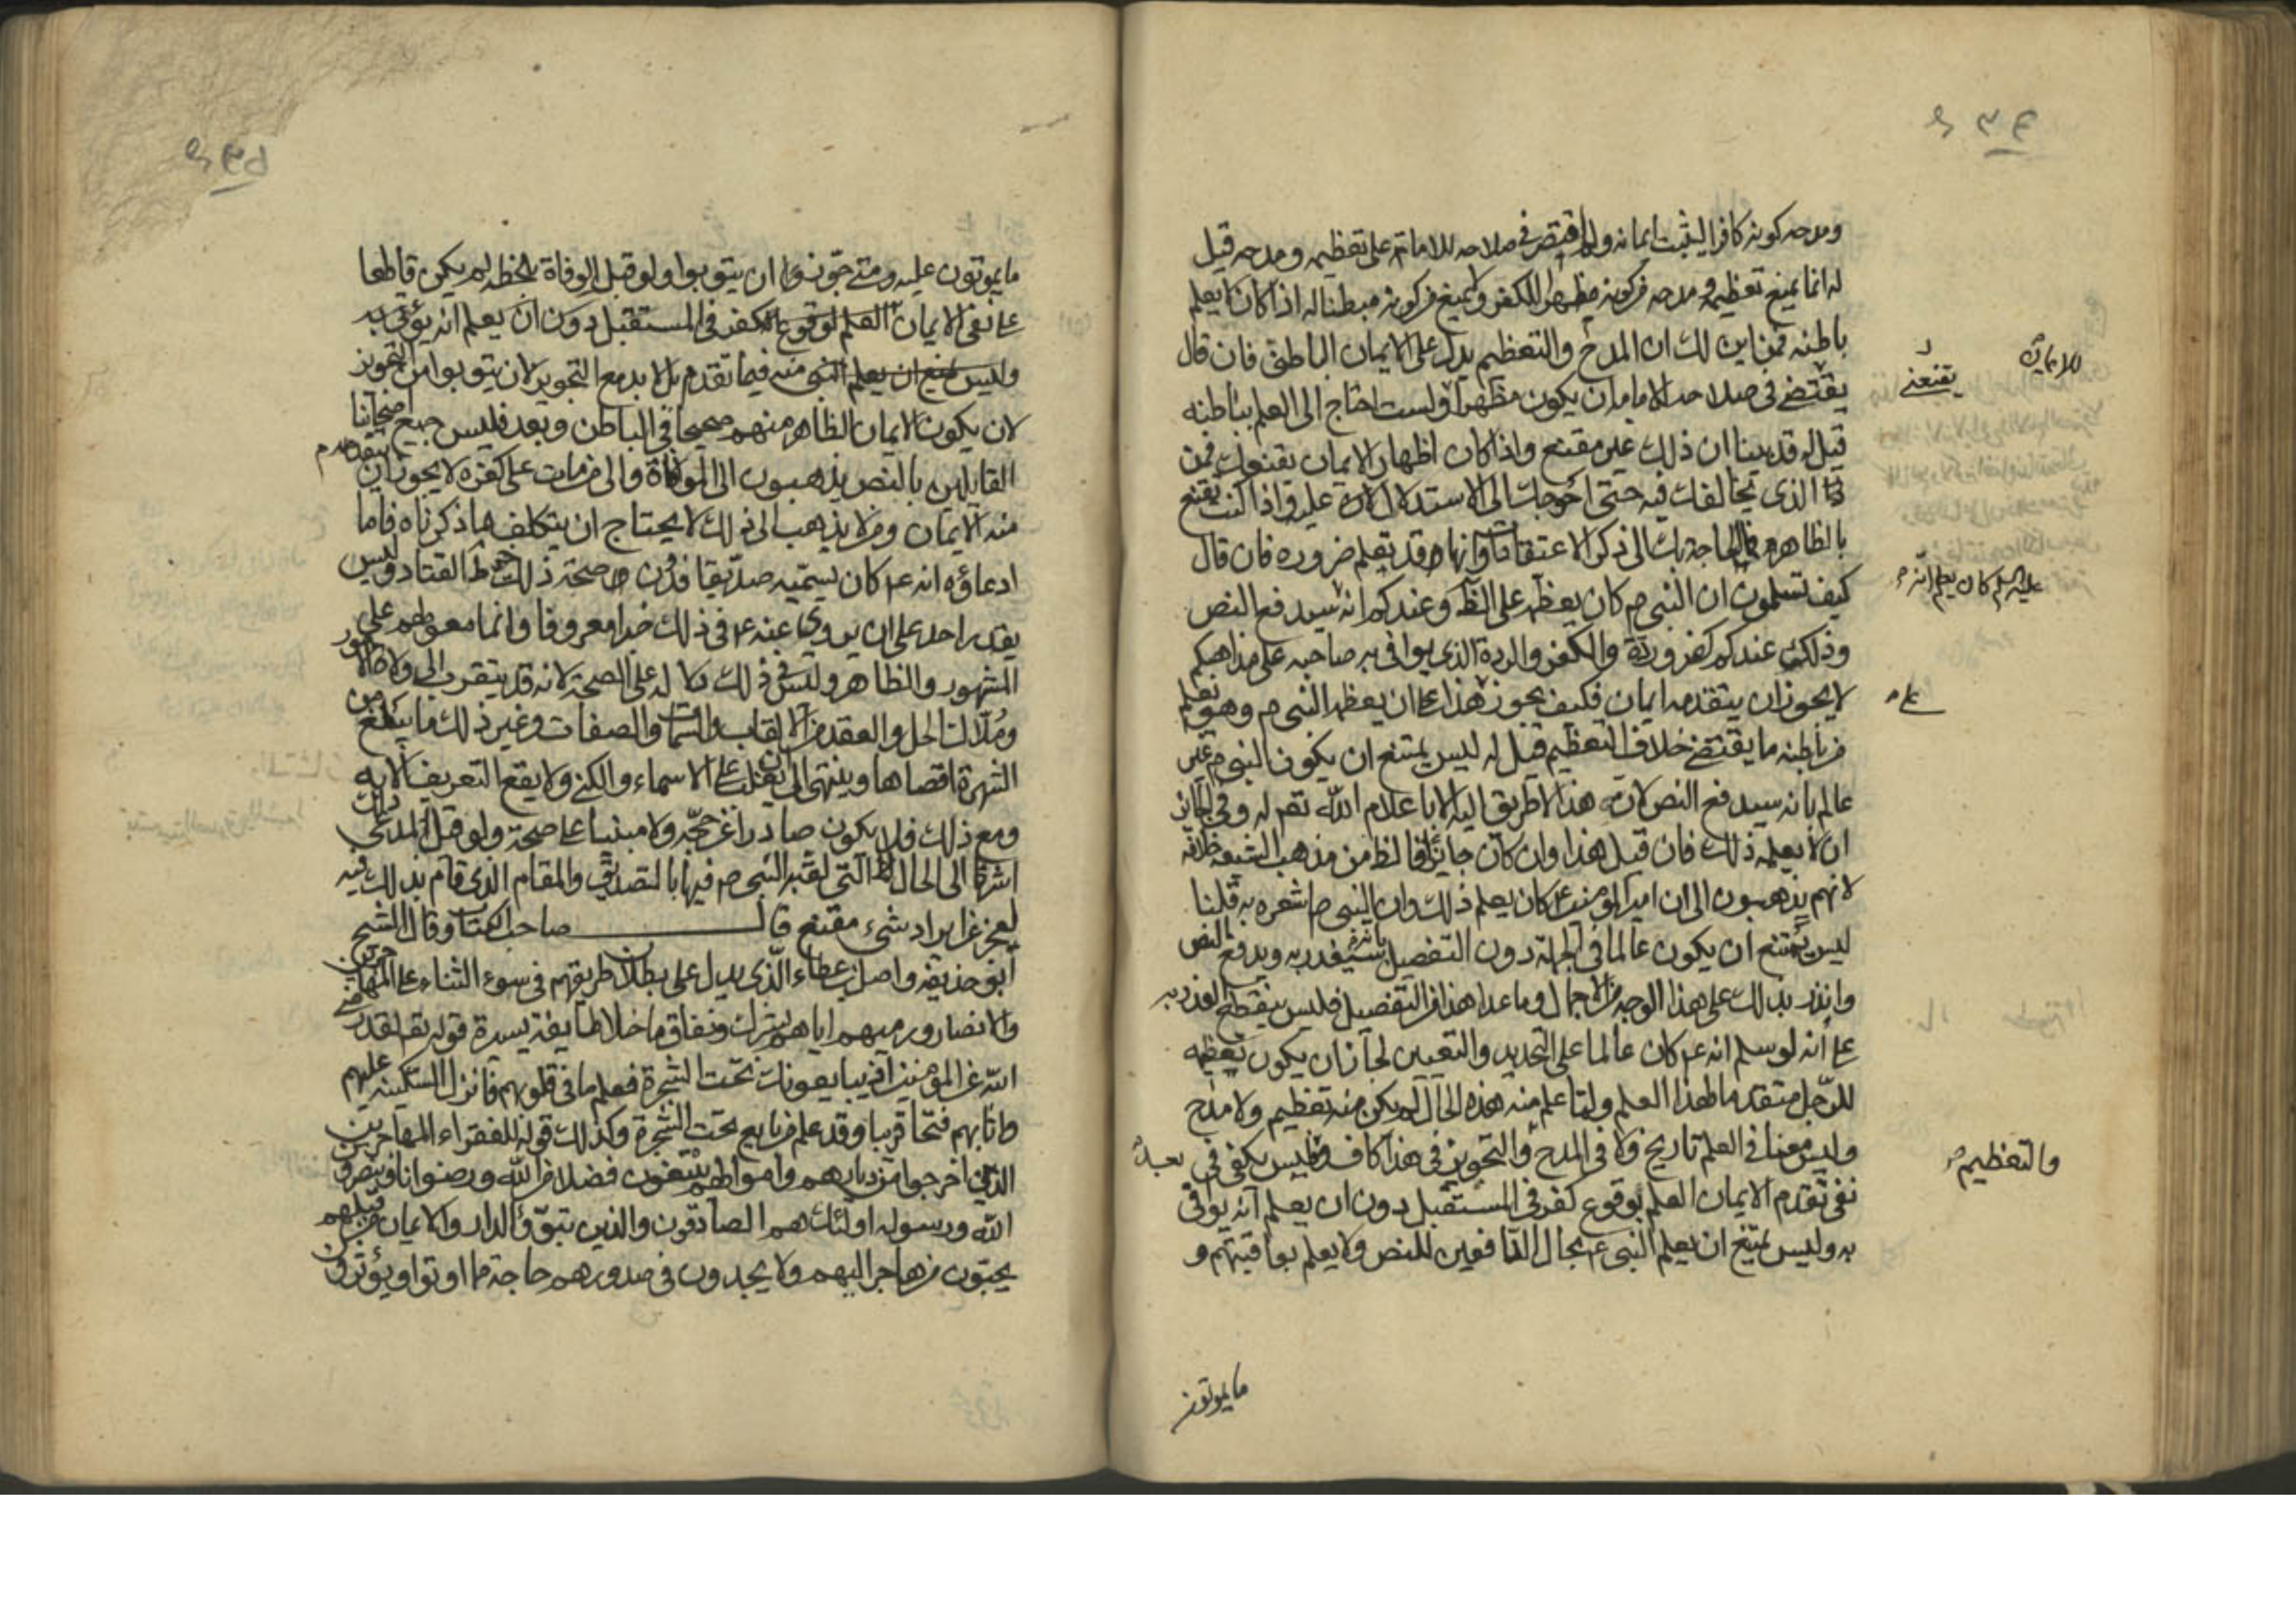 ومدحه كونه كافرا ليثبت ايمانه ولم اقتصر في صلاحه للامامة على تعظيمه ومدحه قيل
له انما يمنع تعظيمه ومدحه من كونه مظهرا للكفر ولا يمنع من كونه مبطنا له اذا كان لا يعلم
باطنه فمن اين لك ان المدح والتعظيم يدل على الايمان الباطن فان قال
يقتضى في صلاحه للامامة ان يكون مظهرا ولست احتاج الى العلم بباطنه
قيل له قد بينا ان ذلك غير مقنع واذا كان اظهار الايمان يقنعك فمن
ذا الذى يخالفك فيه حتى احوجك الى الاستدلال عليه واذا كنت تقنع
بالظاهر فما الحاجة بك الى ذكر الاعتقادات وانها قد تعلم ضرورة فان قال
كيف تسلمون ان النبى ص كان يعظم على الظاهر وعندكم انه سيدفع النص
وذلك عندكم كفر وردة والكفر والردة الذى يوافى به صاحبه على مذاهبكم
لا يجوز ان يتقدمه ايمان فكيف يجوز على هذا ان يعظمه النبى ص وهو يعلم
من باطنه ما يقتضى خلاف التعظيم قيل له ليس يمتنع ان يكون النبى ص غير
عالم بانه سيدفع النص لان هذا لا طريق اليه الا باعلام الله تعالى له وفي الجائز
ان لا يعلمه ذلك فان قيل هذا وان كان جائزا فالظ من مذهب الشيعة خلافه
لانهم يذهبون الى ان امير المؤمنين ع كان يعلم ذلك وان النبى ص اشعره به قلنا
ليس يمتنع ان يكون عالما في الجملة دون التفصيل بانه سيغدر به ويدفع النص
وانذر بذلك على هذا الوجه من الاجمال وما عدا هذا من التفصيل فليس ينقطع العذر به
على انه لو سلم انه ع كان عالما على التحديد والتعيين لجاز ان يكون تعظيمه
للرجل متقدما لهذا العلم ولما علم منه هذه الحال لم يكن منه تعظيم ولا مدح
وليس معنا في العلم تاريخ ولا في المدح والتجويز في هذا كاف وليس يكفى في
نفى تقدم الايمان العلم بوقوع كفر في المستقبل دون ان يعلم انه يوافى
به وليس يمتنع ان يعلم النبى ع بحال الدافعين للنص ولا يعلم بعاقبتهم و
للامامة
يقنعنى
عليه السلم كان يعلم انه
على
والتعظيم
بعد
ما يموتون
ما يموتون عليه ومتى جوزنا ان يتوبوا ولو قبل الوفاة بلحظة لم يكن قاطعا
على نفى الايمان العلم لوقوع الكفر في المستقبل دون ان يعلم انه يؤتى به
وليس يمتنع ان يعلم النبى منه فيما تقدم بل لا بد مع التجويز لان يتوبوا من التجويز
لان يكون الايمان الظاهر منهم صحيحا في الباطن وبعد فليس جميع اصحابنا
القائلين بالنص يذهبون الى الموافاة والى من مات على كفره لا يجوز ان يتقدم
منه الايمان ومن لا يذهب الى ذلك لا يحتاج ان يتكلف ما ذكرناه فاما
ادعاؤه انه ع كان يسميه صديقا فدون صحة ذلك خرط القتاد وليس
يقدر احد على ان يروى عنه ع في ذلك خبرا معروفا وانما معولهم على
المشهور والظاهر وليس في ذلك دلالة على الصحة لانه قد يتقرب الى ولاة الامور
وملاك الحل والعقد من الالقاب والسمات والصفات وغير ذلك ما يبلغ من
الشهرة اقصاها وينتهى الى ان يغلب على الاسماء والكنى ولا يقع التعريف الا به
ومع ذلك فلا يكون صادرا عن حجة ولا مبنيا على صحة ولو قيل لمدعى ذلك
اشرنا الى الحال التى لقبه النبى ص فيها بالتصديق والمقام الذى قام بذلك فيه
لعجز عن ايراد شىء مقنع قال صاحب الكتاب وقال الشيخ
ابو حذيفة واصل بن عطاء الذى يدل على بطلان طريقهم في سوء الثناء على المهاجرين
والانصار ورميهم اياهم بشرك ونفاق ما خلا طايفة يسيرة قوله تعالى لقد رضى
الله عن المؤمنين اذ يبايعونك تحت الشجرة فعلم ما في قلوبهم فانزل السكينة عليهم
واثابهم فتحا قريبا وقد علم من بايع تحت الشجرة وكذلك قوله للفقراء المهاجرين
الذين اخرجوا من ديارهم واموالهم يبتغون فضلا من الله ورضوانا وينصرون
الله ورسوله اولئك هم الصادقون والذين تبوؤ الدار والايمان من قبلهم
يحبون من هاجر اليهم ولا يجدون في صدورهم حاجة مما اوتوا ويؤثرون